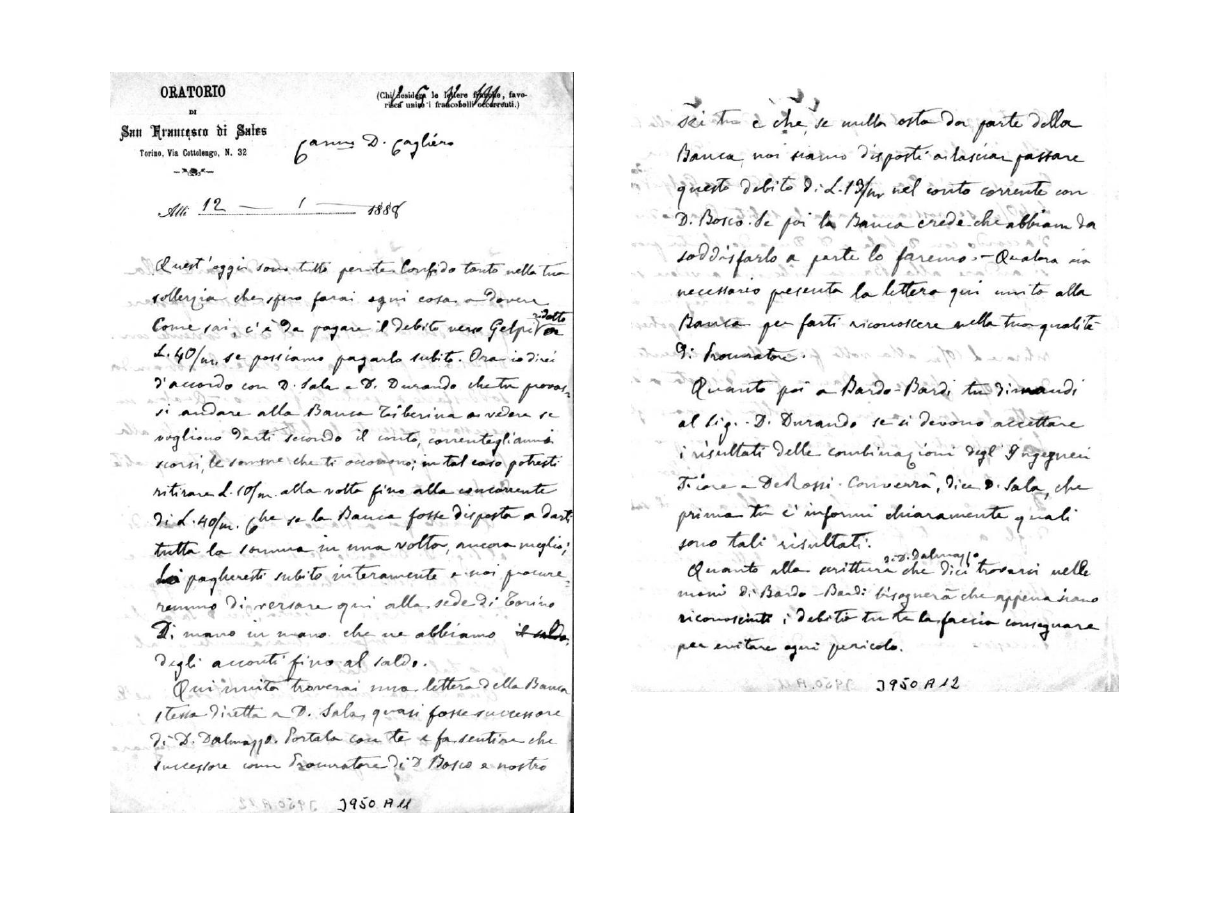 ORATORIO
DI
San Francesco di Sales
Torino, Via Cottolengo, N. 32
(Chi desidera le lettere franche, favo-
risca unire i francobolli occorrenti.)
Carmo D. Cagliero
Alli 12 — 1 — 1888
Quest'oggi sono tutto per te. Confido tanto nella tua
sollerzia che spero farai ogni cosa a dovere
Come sai, c'è da pagare il debito verso Gelpi ridotto a
L. 40/m. se possiamo pagarlo subito. Ora io direi
d'accordo con D. Sala e D. Durando che tu provas-
si andare alla Banca Tiberina a vedere se
vogliono darti secondo il conto, corrente gli anni
scorsi, le somme che ti occorrono; in tal caso potresti
ritirare L. 10/m. alla volta fino alla concorrente
di L. 40/m. Che se la Banca fosse disposta a darti
tutta la somma in una volta, ancora meglio;
pagheresti subito interamente e noi procure-
remmo di versare qui alla sede di Torino
Di mano in mano che ne abbiamo il saldo
degli acconti fino al saldo.
Qui unita troverai una lettera della Banca
stessa diretta a D. Sala, quasi fosse successore
di D. Dalmazzo. Portala con te e fa sentire che
successore come Procuratore di D Bosco e nostro
sei tu e che, se nulla osta da parte della
Banca, noi siamo disposti a lasciar passare
questo debito di L. 13/m nel conto corrente con
D. Bosco. Se poi la Banca crede che abbiam da
soddisfarlo a parte lo faremo. - Qualora sia
necessario presenta la lettera qui unita alla
Banca per farti riconoscere nella tua qualità
di Procuratore.
Quanto poi a Bardo-Bardi tu dimandi
al Sig. D. Durando se si devono accettare
i risultati delle combinazioni degl'Ingegneri
e DeRossi. Converrà, dice D. Sala, che
prima tu c'informi chiaramente quali
sono tali risultati.
Quanto alla scrittura di D. Dalmazzo che dici trovarsi nelle
mani di Bardo-Bardi bisognerà che appena siano
riconosciuti i debiti tu te la faccia consegnare
per evitare ogni pericolo.
J950 A 11
J950 A 12